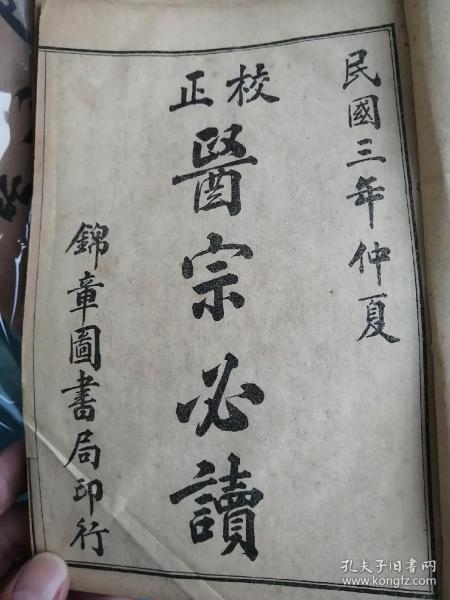 民國三年仲夏
校正
醫宗必讀
錦章圖書局印行
孔夫子旧书网
www.kongfz.com